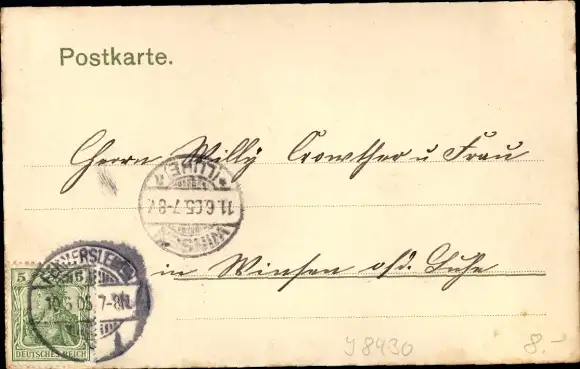 Postkarte.
Herrn Willy Crowther u Frau
(LUHE)
11.6.05.7-8
WINSEN
in Winsen a/d. Luhe
5
10.6.05.7-8N.
DEUTSCHES REICH
J 8430
8.-